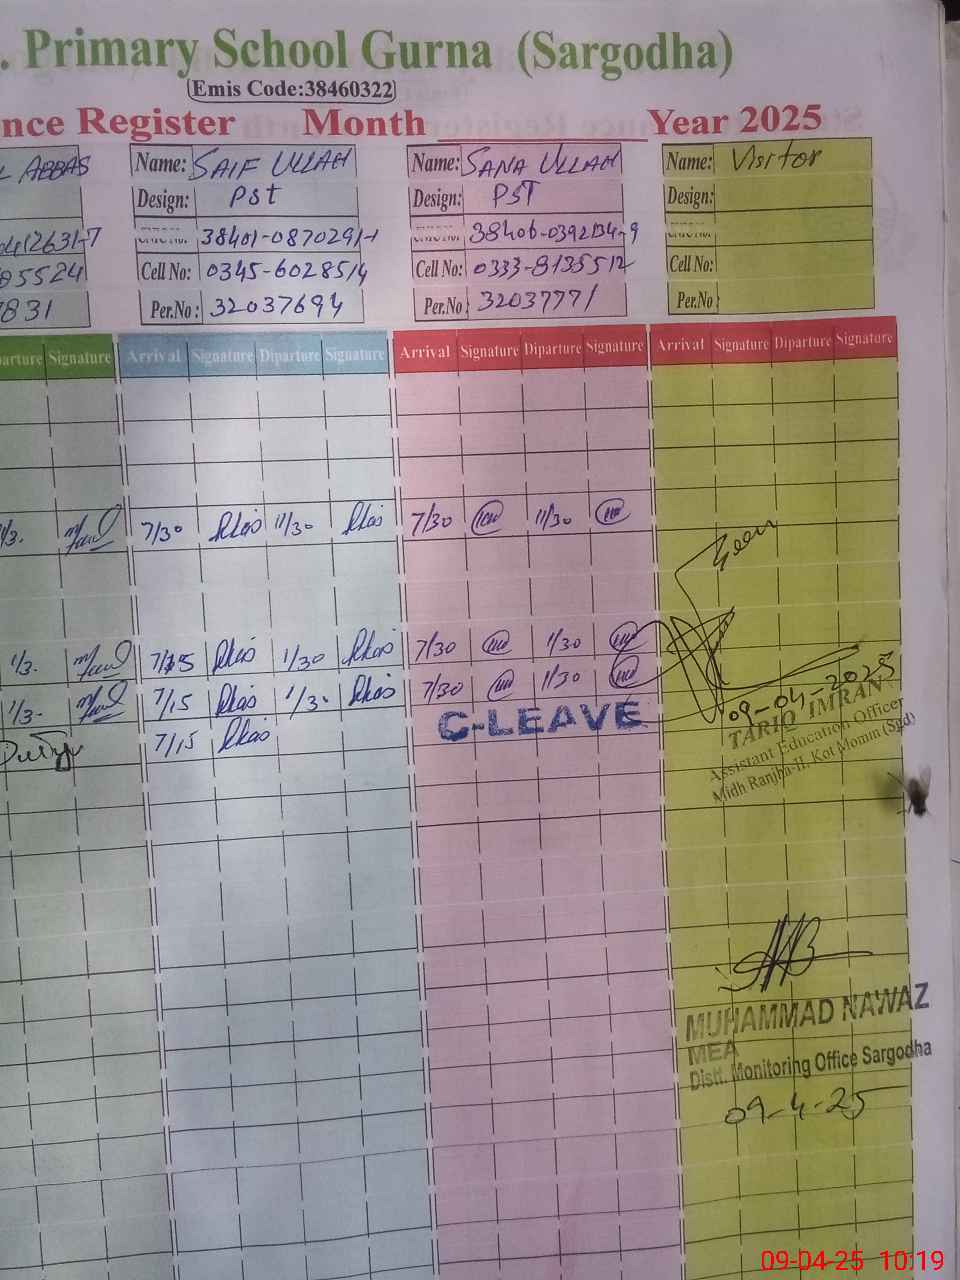 . Primary School Gurna (Sargodha)
Emis Code:38460322
nce Register Month Year 2025
L ABBAS Name: SAIF ULLAH Name: SANA ULLAH Name: Visitor
Design: PSt Design: PST Design:
38401-0870291-1
05524 Cell No: 0345-6028514 Cell No: 0333-8135512 Cell No:
7831 Per.No : 32037694 Per.No : 32037771 Per.No :
parture Signature Arrival Signature Diparture Signature Arrival Signature Diparture Signature Arrival Signature Diparture Signature
7/30 11/30 7/30 11/30
Seen
1/3. 7/15 1/30 7/30 1/30
1/3. 7/15 1/30 7/30 11/30
09-04-2025
7/15 C-LEAVE TARIQ IMRAN
Assistant Education Officer
Midh Ranjha-II, Kot Momin (Sgd)
MUHAMMAD NAWAZ
MEA
Distt. Monitoring Office Sargodha
09-4-25
09-04-25 10:19